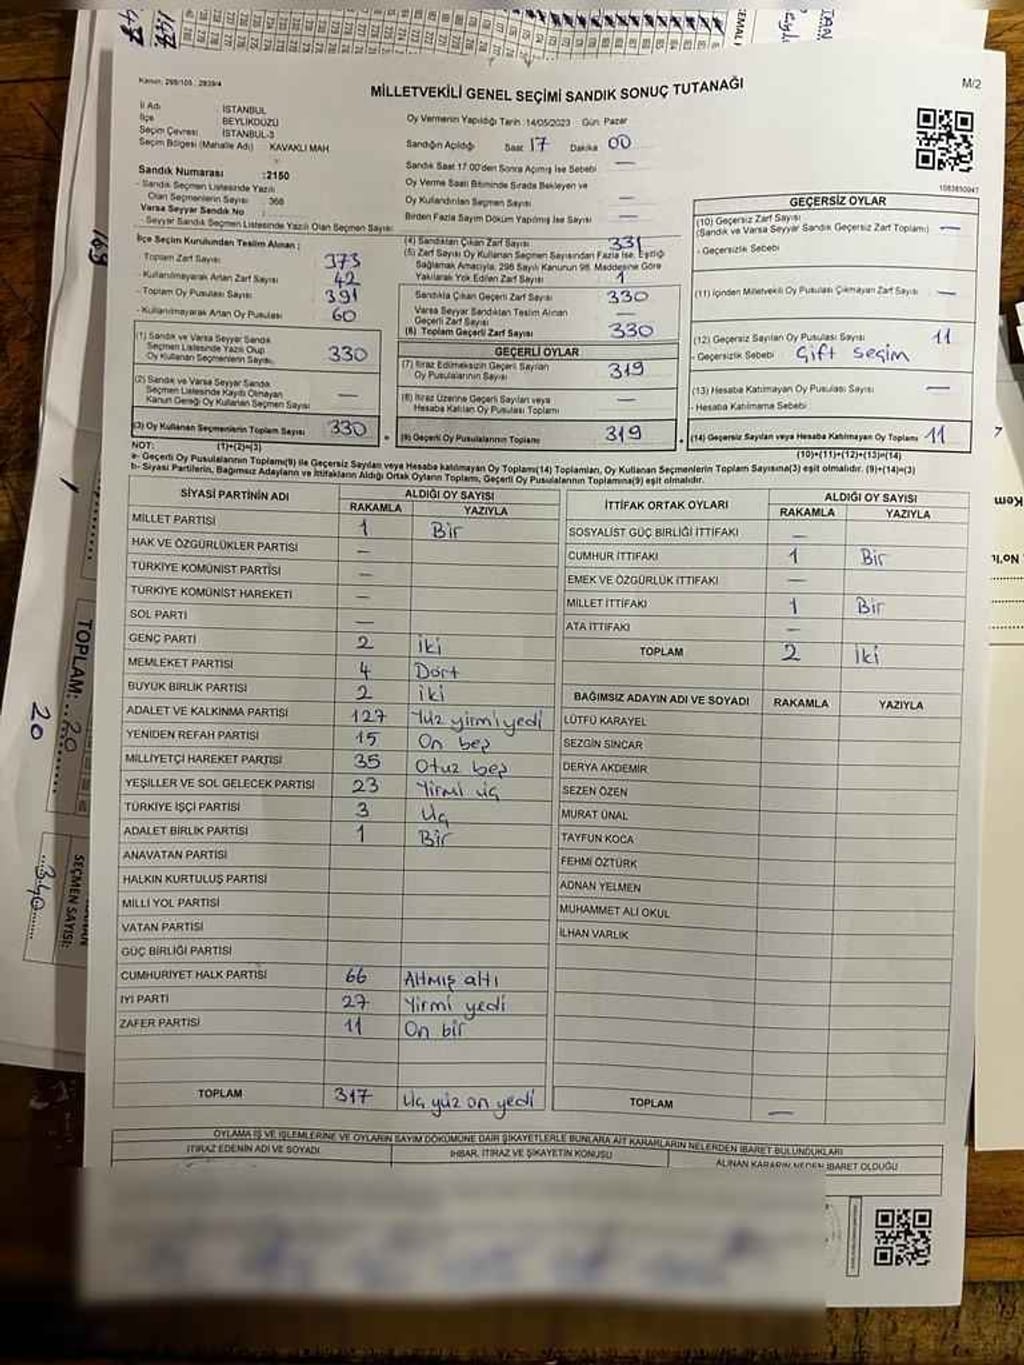 Kanun: 298/105 : 2839/4
MİLLETVEKİLİ GENEL SEÇİMİ SANDIK SONUÇ TUTANAĞI
M/2
İl Adı : İSTANBUL
İlçe : BEYLİKDÜZÜ
Seçim Çevresi : İSTANBUL-3
Seçim Bölgesi (Mahalle Adı) KAVAKLI MAH.
Sandık Numarası :2150
- Sandık Seçmen Listesinde Yazılı
Olan Seçmenlerin Sayısı : 368
Varsa Seyyar Sandık No :
- Seyyar Sandık Seçmen Listesinde Yazılı Olan Seçmen Sayısı:
İlçe Seçim Kurulundan Teslim Alınan ;
- Toplam Zarf Sayısı 373
- Kullanılmayarak Artan Zarf Sayısı 42
- Toplam Oy Pusulası Sayısı 391
- Kullanılmayarak Artan Oy Pusulası 60
(1) Sandık ve Varsa Seyyar Sandık
Seçmen Listesinde Yazılı Olup
Oy Kullanan Seçmenlerin Sayısı 330
(2) Sandık ve Varsa Seyyar Sandık
Seçmen Listesinde Kayıtlı Olmayan
Kanun Gereği Oy Kullanan Seçmen Sayısı —
(3) Oy Kullanan Seçmenlerin Toplam Sayısı 330
Oy Vermenin Yapıldığı Tarih :14/05/2023 Gün: Pazar
Sandığın Açıldığı Saat 17 Dakika 00
Sandık Saat 17:00'den Sonra Açılmış İse Sebebi —
Oy Verme Saati Bitiminde Sırada Bekleyen ve
Oy Kullandırılan Seçmen Sayısı —
Birden Fazla Sayım Döküm Yapılmış İse Sayısı —
(4) Sandıktan Çıkan Zarf Sayısı 331
(5) Zarf Sayısı Oy Kullanan Seçmen Sayısından Fazla İse, Eşitliği
Sağlamak Amacıyla, 298 Sayılı Kanunun 98. Maddesine Göre
Yakılarak Yok Edilen Zarf Sayısı 1
Sandıkta Çıkan Geçerli Zarf Sayısı 330
Varsa Seyyar Sandıktan Teslim Alınan
Geçerli Zarf Sayısı —
(6) Toplam Geçerli Zarf Sayısı 330
GEÇERLİ OYLAR
(7) İtiraz Edilmeksizin Geçerli Sayılan
Oy Pusulalarının Sayısı 319
(8) İtiraz Üzerine Geçerli Sayılan veya
Hesaba Katılan Oy Pusulası Toplamı —
(9) Geçerli Oy Pusulalarının Toplamı 319
1083830941
GEÇERSİZ OYLAR
(10) Geçersiz Zarf Sayısı
(Sandık ve Varsa Seyyar Sandık Geçersiz Zarf Toplamı) —
- Geçersizlik Sebebi
(11) İçinden Milletvekili Oy Pusulası Çıkmayan Zarf Sayısı —
(12) Geçersiz Sayılan Oy Pusulası Sayısı 11
- Geçersizlik Sebebi Çift seçim
(13) Hesaba Katılmayan Oy Pusulası Sayısı —
- Hesaba Katılmama Sebebi
(14) Geçersiz Sayılan veya Hesaba Katılmayan Oy Toplamı 11
NOT: (1)+(2)=(3)
(10)+(11)+(12)+(13)=(14)
a- Geçerli Oy Pusulalarının Toplamı(9) ile Geçersiz Sayılan veya Hesaba katılmayan Oy Toplamı(14) Toplamları, Oy Kullanan Seçmenlerin Toplam Sayısına(3) eşit olmalıdır. (9)+(14)=(3)
b- Siyasi Partilerin, Bağımsız Adayların ve İttifakların Aldığı Ortak Oyların Toplamı, Geçerli Oy Pusulalarının Toplamına(9) eşit olmalıdır.
SİYASİ PARTİNİN ADI ALDIĞI OY SAYISI
RAKAMLA YAZIYLA
MİLLET PARTİSİ 1 Bir
HAK VE ÖZGÜRLÜKLER PARTİSİ —
TÜRKİYE KOMÜNİST PARTİSİ —
TÜRKİYE KOMÜNİST HAREKETİ —
SOL PARTİ —
GENÇ PARTİ 2 İki
MEMLEKET PARTİSİ 4 Dört
BÜYÜK BİRLİK PARTİSİ 2 İki
ADALET VE KALKINMA PARTİSİ 127 Yüz yirmi yedi
YENİDEN REFAH PARTİSİ 15 On beş
MİLLİYETÇİ HAREKET PARTİSİ 35 Otuz beş
YEŞİLLER VE SOL GELECEK PARTİSİ 23 Yirmi üç
TÜRKİYE İŞÇİ PARTİSİ 3 Üç
ADALET BİRLİK PARTİSİ 1 Bir
ANAVATAN PARTİSİ
HALKIN KURTULUŞ PARTİSİ
MİLLİ YOL PARTİSİ
VATAN PARTİSİ
GÜÇ BİRLİĞİ PARTİSİ
CUMHURİYET HALK PARTİSİ 66 Altmış altı
İYİ PARTİ 27 Yirmi yedi
ZAFER PARTİSİ 11 On bir
TOPLAM 317 Üç yüz on yedi
İTTİFAK ORTAK OYLARI ALDIĞI OY SAYISI
RAKAMLA YAZIYLA
SOSYALİST GÜÇ BİRLİĞİ İTTİFAKI —
CUMHUR İTTİFAKI 1 Bir
EMEK VE ÖZGÜRLÜK İTTİFAKI —
MİLLET İTTİFAKI 1 Bir
ATA İTTİFAKI —
TOPLAM 2 İki
BAĞIMSIZ ADAYIN ADI VE SOYADI RAKAMLA YAZIYLA
LÜTFÜ KARAYEL
SEZGİN SİNCAR
DERYA AKDEMİR
SEZEN ÖZEN
MURAT ÜNAL
TAYFUN KOCA
FEHMİ ÖZTÜRK
ADNAN YELMEN
MUHAMMET ALİ OKUL
İLHAN VARLIK
TOPLAM —
OYLAMA İŞ VE İŞLEMLERİNE VE OYLARIN SAYIM DÖKÜMÜNE DAİR ŞİKAYETLERLE BUNLARA AİT KARARLARIN NELERDEN İBARET BULUNDUKLARI
İTİRAZ EDENİN ADI VE SOYADI İHBAR, İTİRAZ VE ŞİKAYETİN KONUSU ALINAN KARARIN NEDEN İBARET OLDUĞU
169
TOPLAM: 20
20
SEÇMEN SAYISI:
340
Kem